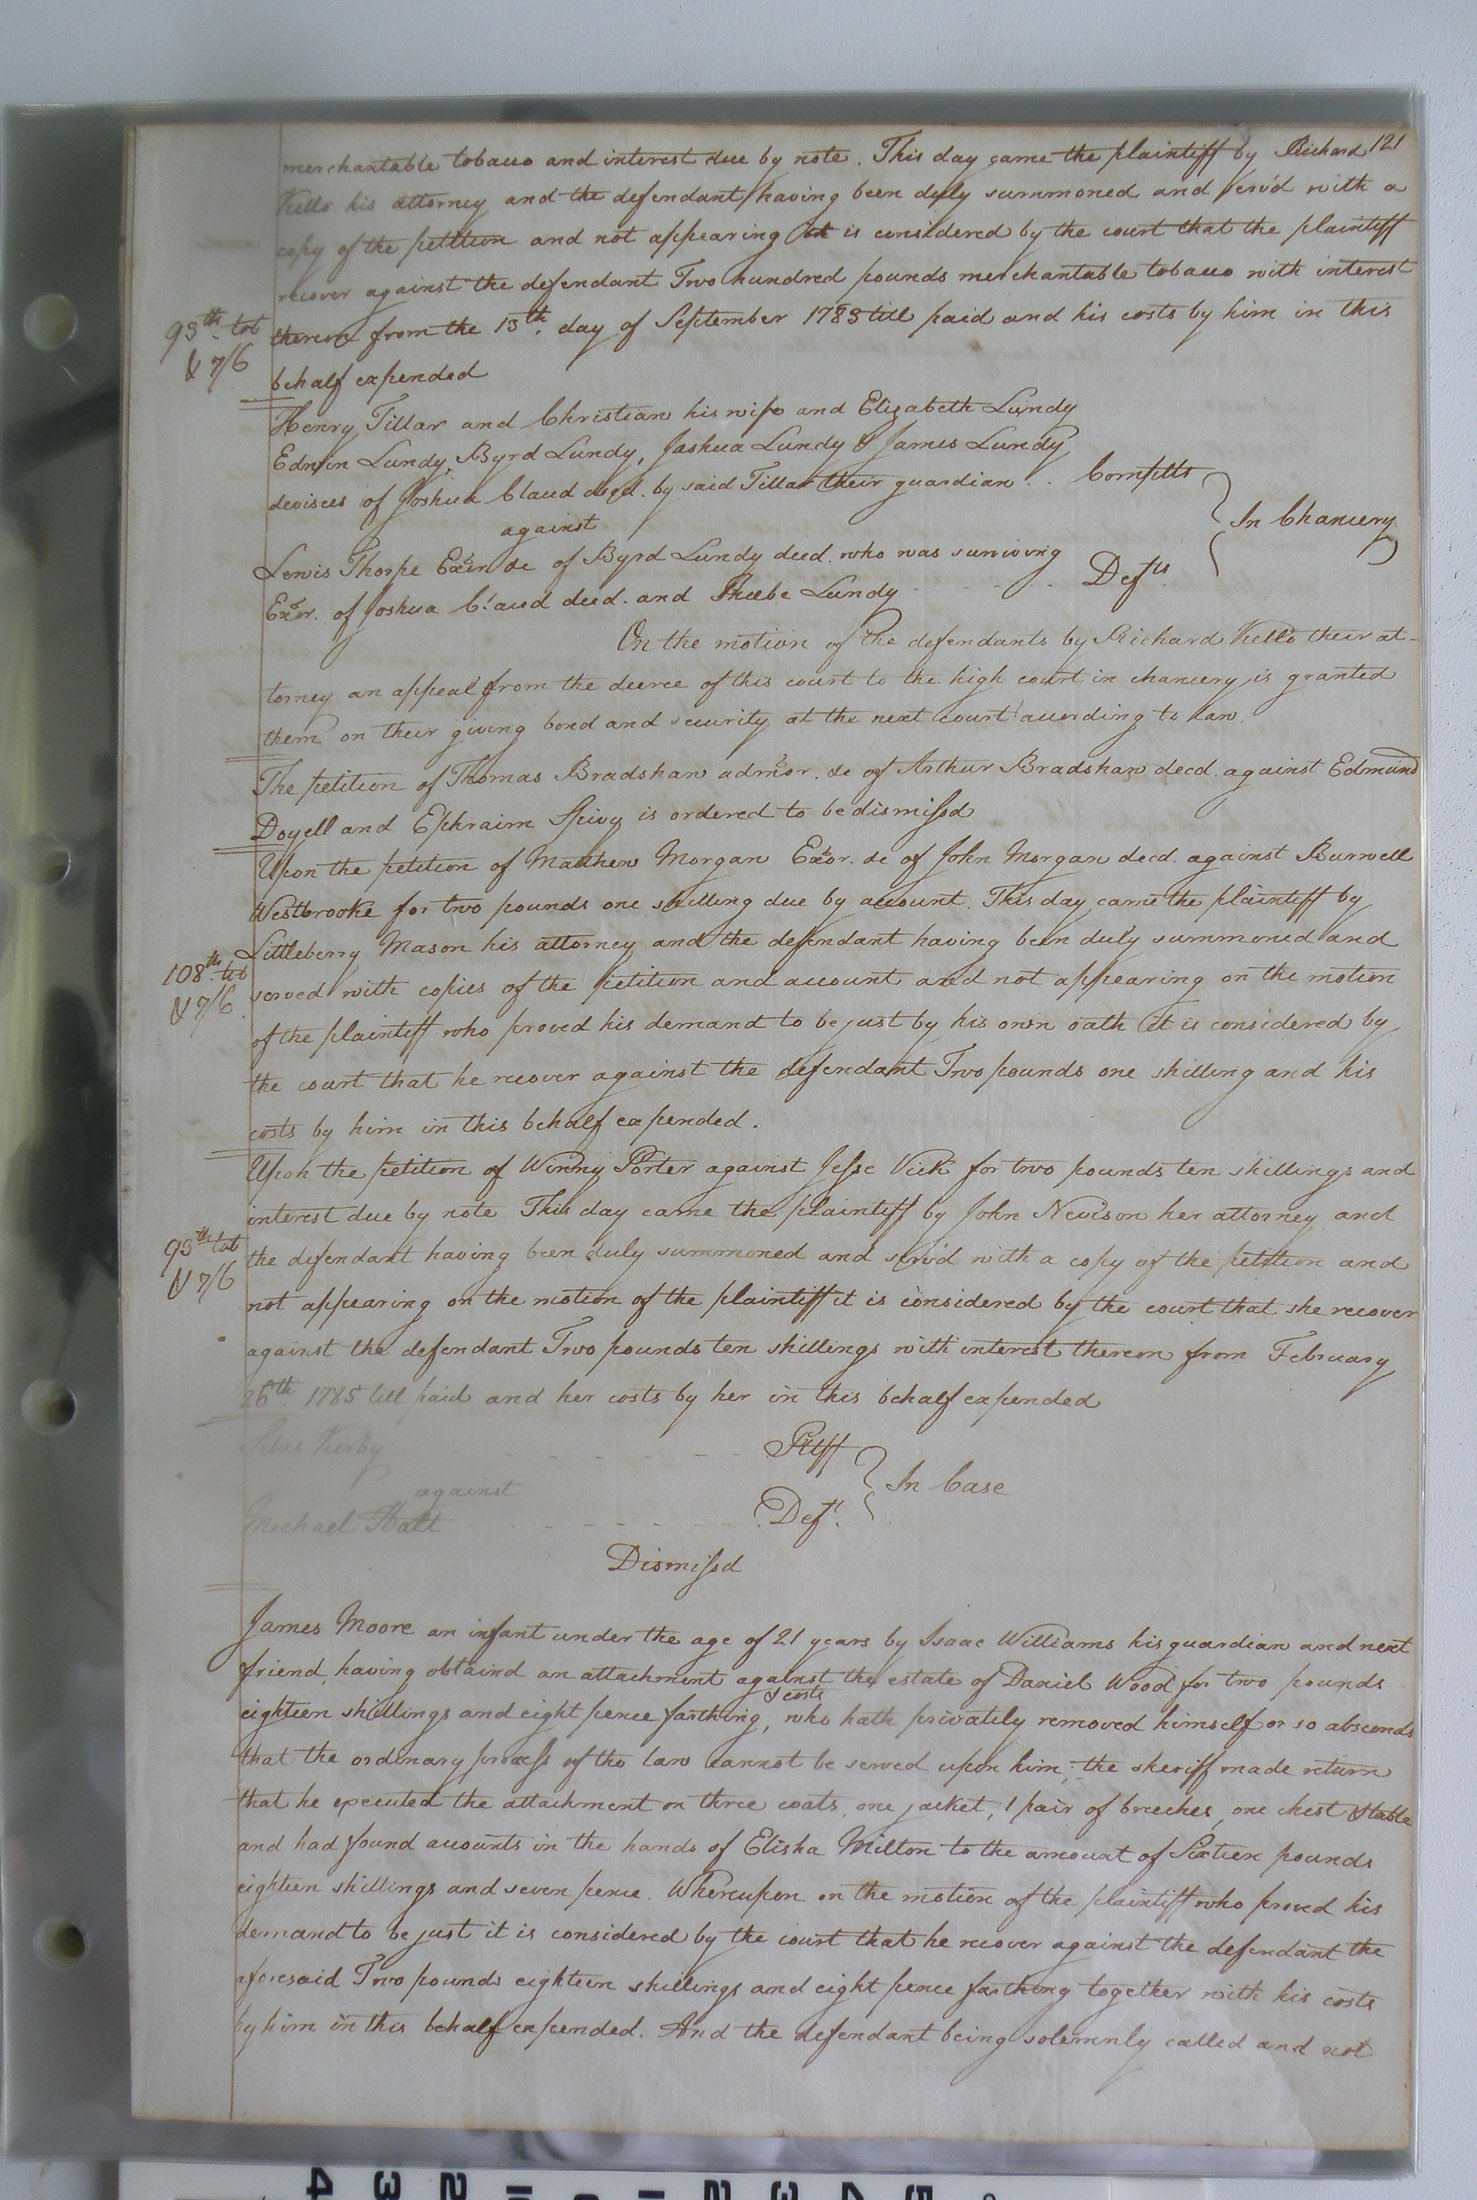 121
merchantable tobacco and interest due by note. This day came the plaintiff by Richard
Kello his attorney and the defendant having been duly summoned and serv'd with a
copy of the petition and not appearing it is considered by the court that the plaintiff
recover against the defendant Two hundred pounds merchantable tobacco with interest
93th tob
thereon from the 13th. day of September 1783 till paid and his costs by him in this
& 7/6
behalf expended
Henry Tillar and Christian his wife and Elizabeth Lundy
Edwin Lundy, Byrd Lundy, Joshua Lundy & James Lundy
devisees of Joshua Claud decd. by said Tillar their guardian . . Complts
against
In Chancery
Lewis Thorpe Exor &c of Byrd Lundy decd. who was surviving
Exor. of Joshua Claud decd. and Phebe Lundy - - - Defts.
On the motion of the defendants by Richard Kello their at-
torney an appeal from the decree of this court to the high court in chancery is granted
them on their giving bond and security at the next court according to law.
The petition of Thomas Bradshaw admor. &c of Arthur Bradshaw decd. against Edmund
Doyell and Ephraim Spivy is ordered to be dismissd
Upon the petition of Matthew Morgan Exor. &c of John Morgan decd. against Burwell
Westbrooke for two pounds one shilling due by account. This day came the plaintiff by
Littleberry Mason his attorney and the defendant having been duly summoned and
108th. tob
& 7/6.
served with copies of the petition and account and not appearing on the motion
of the plaintiff who proved his demand to be just by his own oath it is considered by
the court that he recover against the defendant Two pounds one shilling and his
costs by him in this behalf expended.
Upon the petition of Winny Porter against Jesse Vick for two pounds ten shillings and
interest due by note This day came the plaintiff by John Nevison her attorney and
93th tob
the defendant having been duly summoned and serv'd with a copy of the petition and
& 7/6
not appearing on the motion of the plaintiff it is considered by the court that she recover
against the defendant Two pounds ten shillings with interest thereon from February
26th. 1785 till paid and her costs by her in this behalf expended
Silas Kirby - - - - - Pltff
against
In Case
Michael Holt - - - - - Deft.
Dismissd
James Moore an infant under the age of 21 years by Isaac Williams his guardian and next
friend, having obtaind an attachment against the estate of Daniel Wood for two pounds
& costs
eighteen shillings and eight pence farthing, who hath privately removed himself or so absconds
that the ordinary process of the law cannot be served upon him; the sheriff made return
that he executed the attachment on three coats, one jacket, 1 pair of breeches, one chest & table
and had found accounts in the hands of Elisha Milton to the amount of Sixteen pounds
eighteen shillings and seven pence. Whereupon on the motion of the plaintiff who proved his
demand to be just it is considered by the court that he recover against the defendant the
aforesaid Two pounds eighteen shillings and eight pence farthing together with his costs
by him in this behalf expended. And the defendant being solemnly called and not
4 3 2